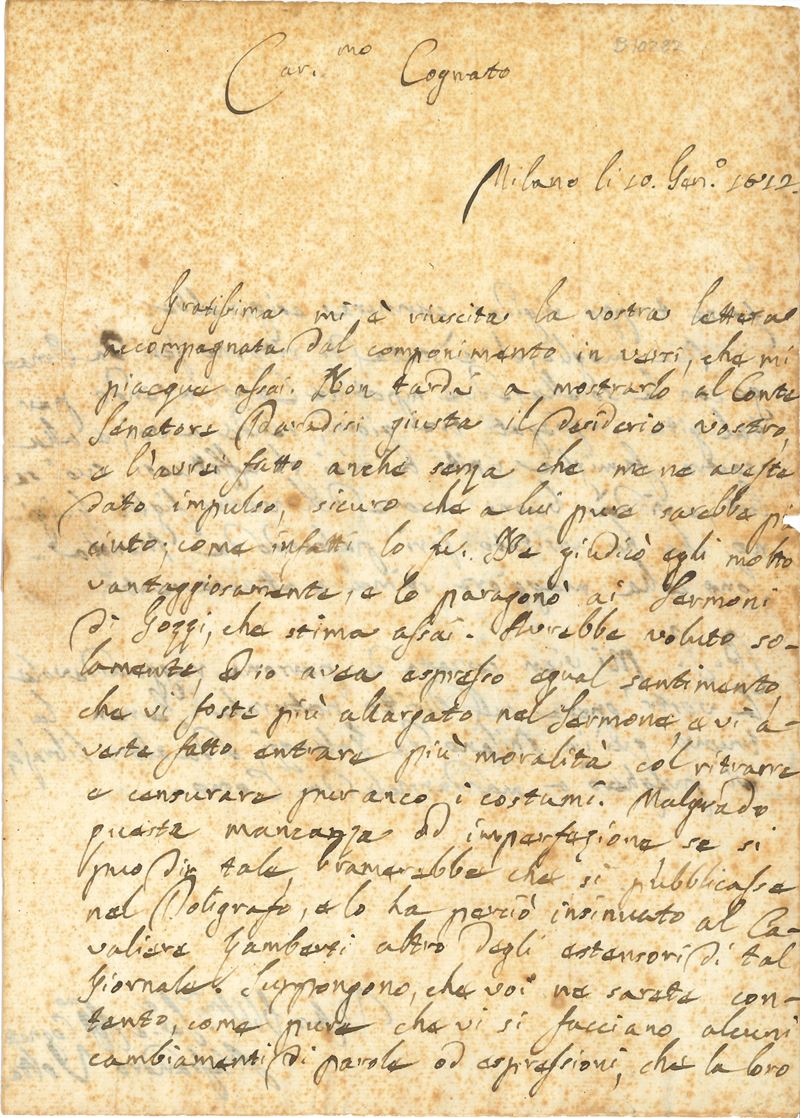 B10282
Car.mo Cognato
Milano li 10. Gen.o 1812.
Gratissima mi è riuscita la vostra lettera
accompagnata dal componimento in versi, che mi
piacque assai. Non tardai a mostrarlo al Conte
Senatore Paradisi giusta il desiderio vostro,
e l'avrei fatto anche senza che me ne aveste
dato impulso, sicuro che a lui pure sarebbe pi
ciuto; come infatti lo fu. Ne giudicò egli molto
vantaggiosamente, e lo paragonò ai Sermoni
di Gozzi, che stima assai. Avrebbe voluto so-
lamente, ed io avea espresso egual sentimento,
che vi foste più allargato nel Sermone, e vi a-
veste fatto entrare più moralità col ritrarre
e censurare pur anco i costumi. Malgrado
questa mancanza od imperfezione se si
può dir tale, bramerebbe che si pubblicasse
nel Poligrafo, e lo ha perciò insinuato al Ca-
valiere Lamberti altro degli estensori di tal
Giornale. Suppongono, che voi ne sarete con-
tento, come pure che vi si facciano alcuni
cambiamenti di parole od espressioni, che la loro